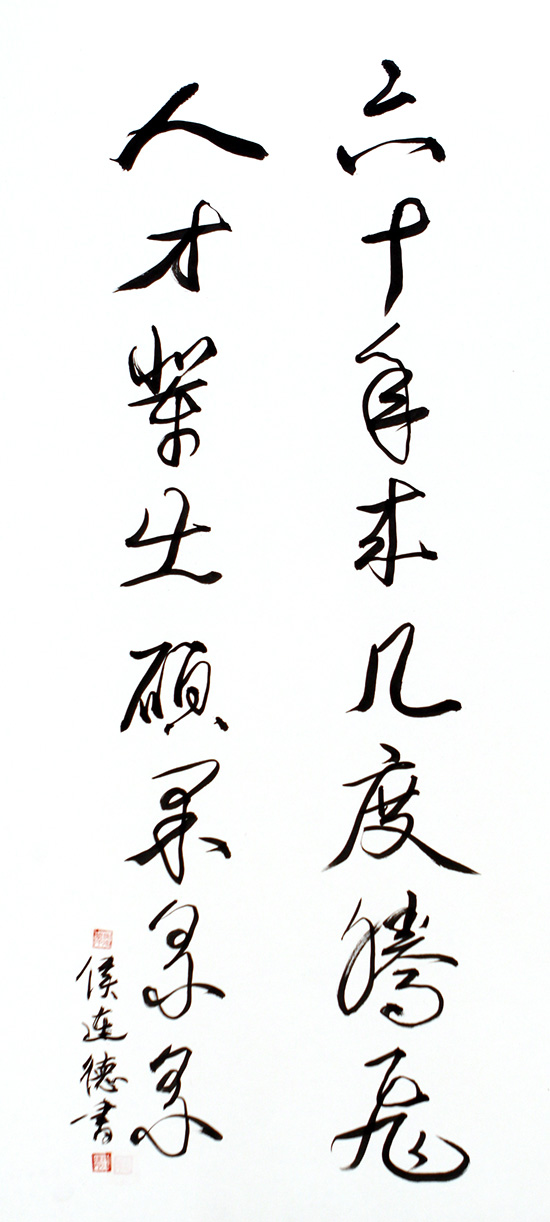 六十年来几度腾飞
人才辈出硕果累累
侯连德书